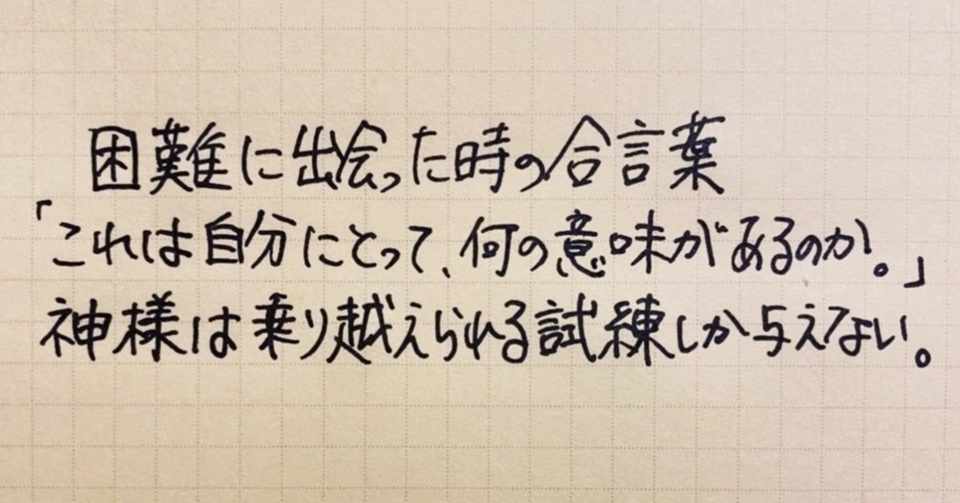 困難に出会った時の合言葉
「これは自分にとって、何の意味があるのか。」
神様は乗り越えられる試練しか与えない。